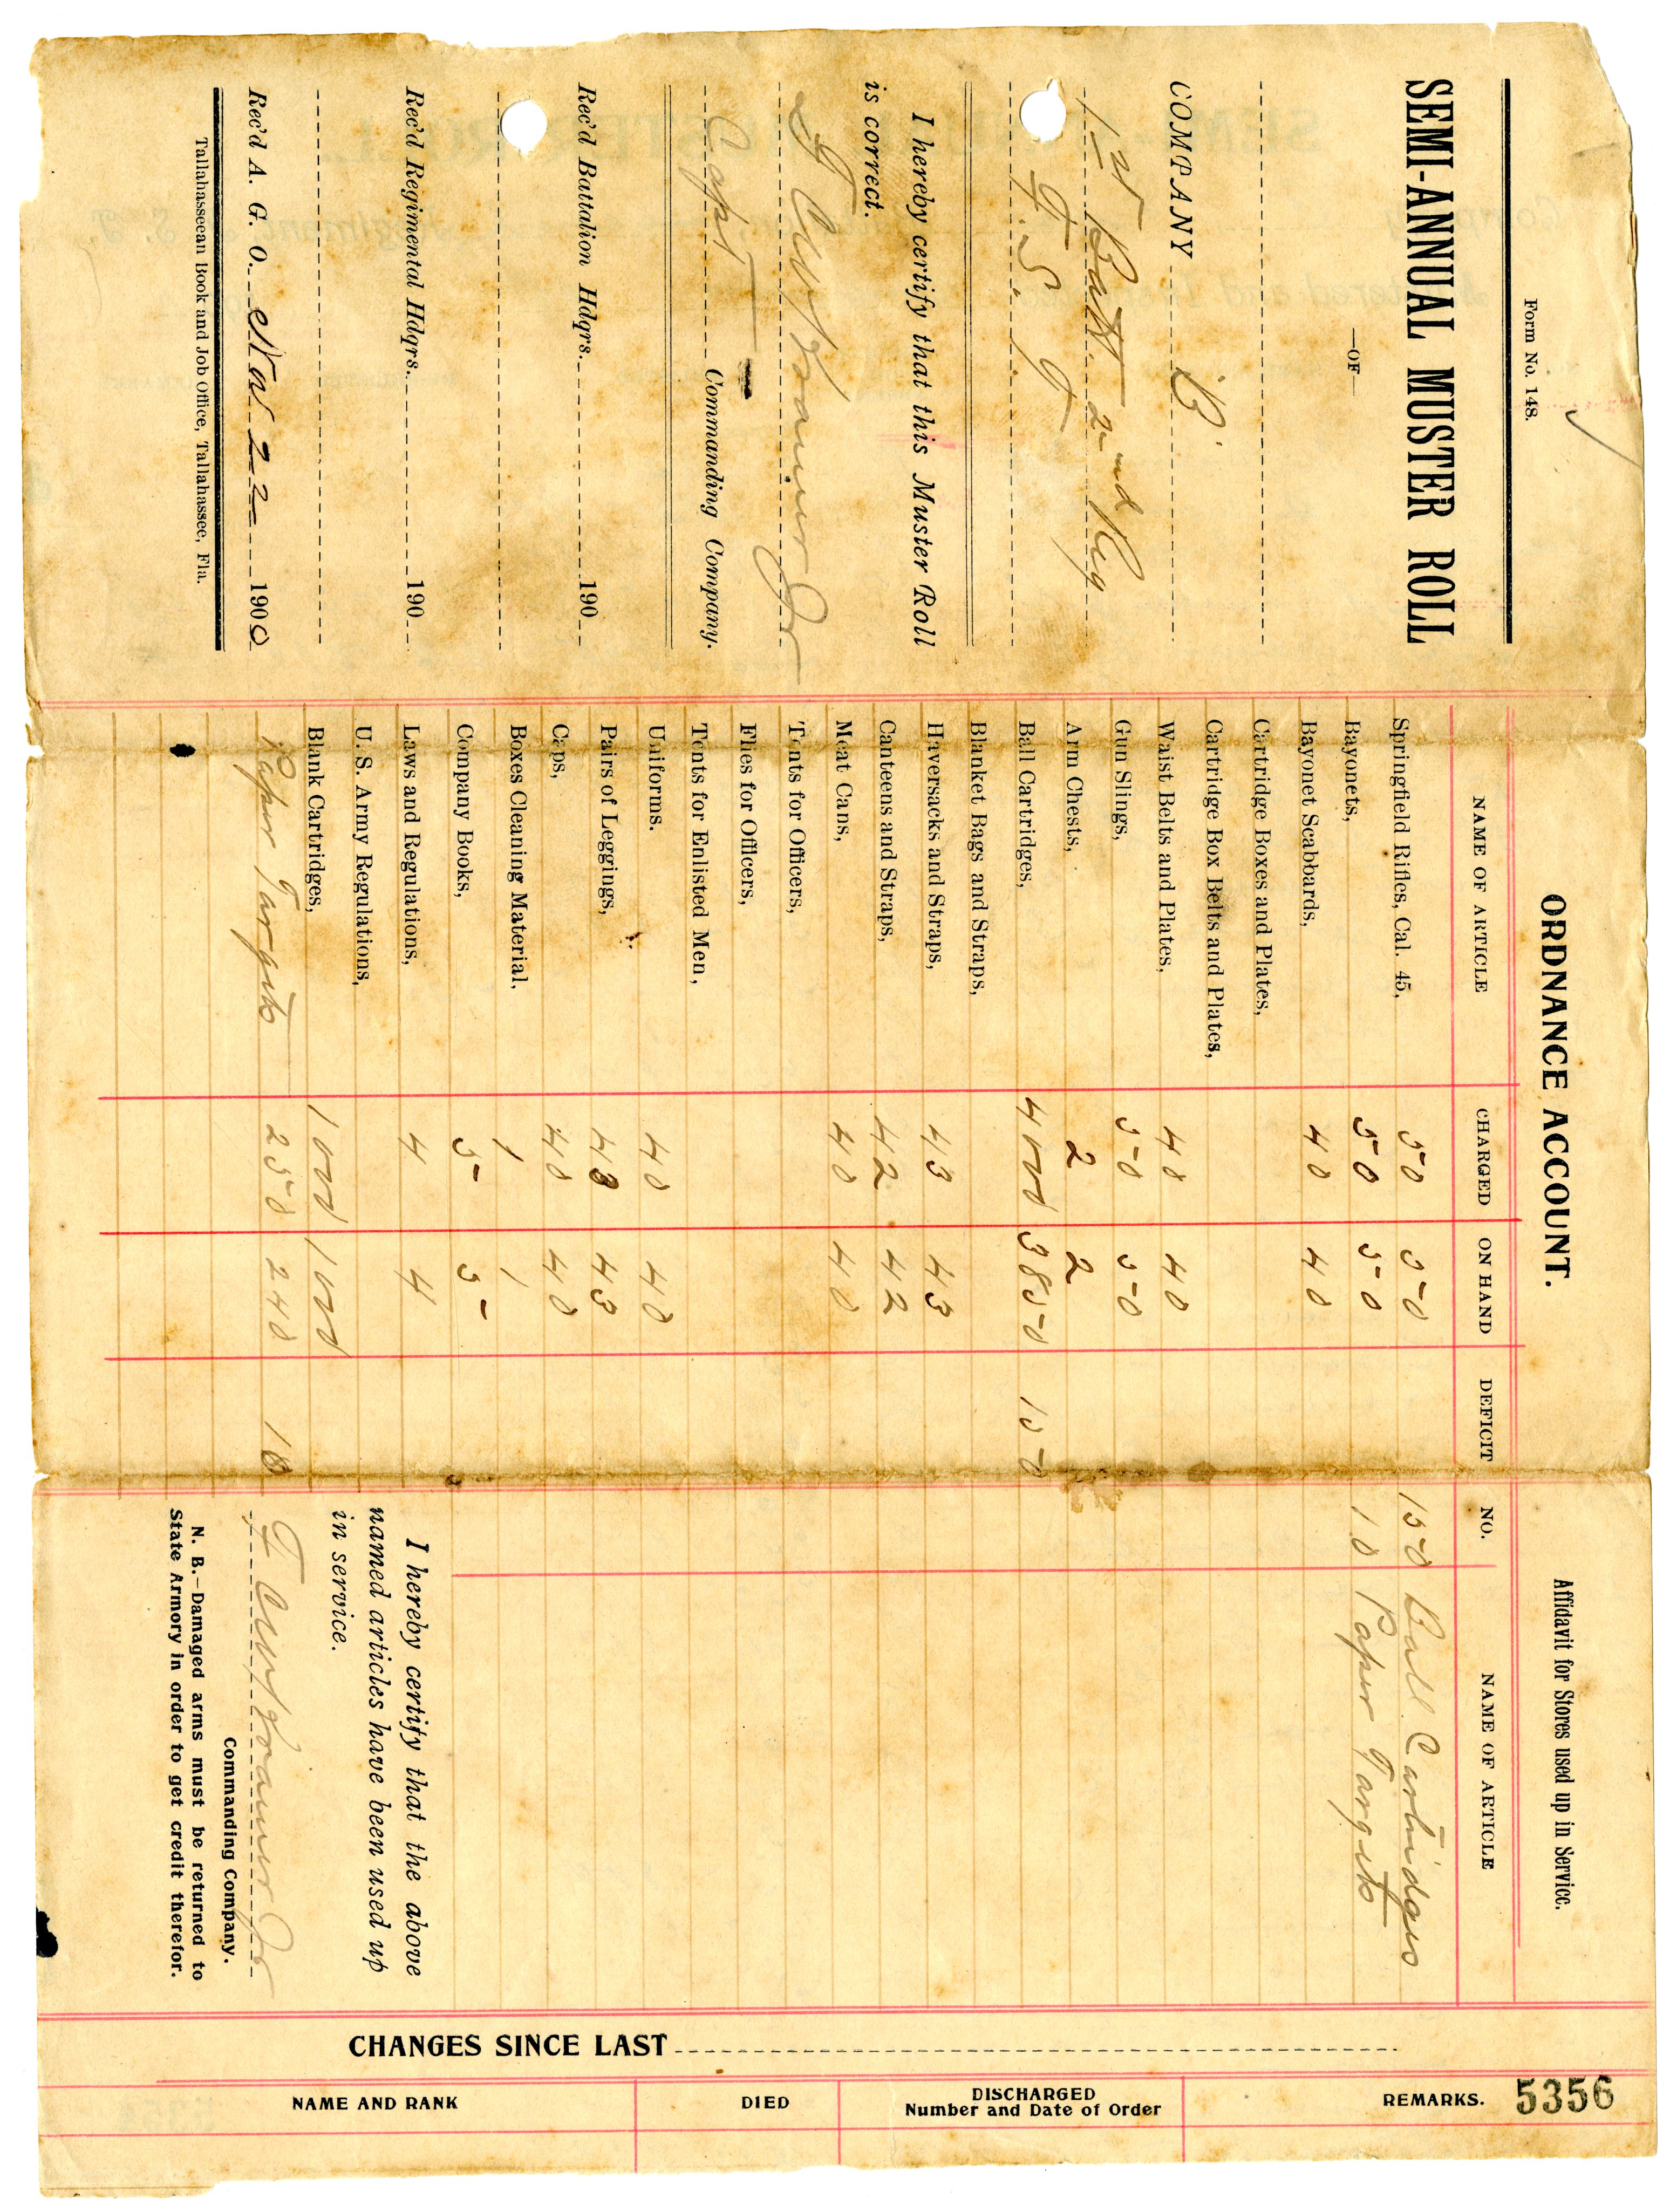 Form No. 148.
SEMI-ANNUAL MUSTER ROLL
—OF—
COMPANY B.
1st Batt. 2nd Reg
F. S. T.
I hereby certify that this Muster Roll
is correct.
Jr
Capt Commanding Company.
Rec'd Battalion Hdqrs. 190
Rec'd Regimental Hdqrs. 190
Rec'd A. G. O. 22 1900
Tallahasseean Book and Job Office, Tallahassee, Fla.
ORDNANCE ACCOUNT.
NAME OF ARTICLE CHARGED ON HAND DEFICIT
Springfield Rifles, Cal. 45, 50 50
Bayonets, 50 50
Bayonet Scabbards, 40 40
Cartridge Boxes and Plates,
Cartridge Box Belts and Plates,
Waist Belts and Plates, 40 40
Gun Slings, 50 50
Arm Chests, 2 2
Ball Cartridges, 4000 3850 150
Blanket Bags and Straps,
Haversacks and Straps, 43 43
Canteens and Straps, 42 42
Meat Cans, 40 40
Tents for Officers,
Flies for Officers,
Tents for Enlisted Men,
Uniforms. 40 40
Pairs of Leggings, 43 43
Caps, 40 40
Boxes Cleaning Material, 1 1
Company Books, 5 5
Laws and Regulations, 4 4
U. S. Army Regulations,
Blank Cartridges, 1000 1000
Paper Targits 250 240 10
Affidavit for Stores used up in Service.
NO. NAME OF ARTICLE
150 Ball Cartridges
10 Paper Targits
I hereby certify that the above
named articles have been used up
in service.
Jr
Commanding Company.
N. B.—Damaged arms must be returned to
State Armory in order to get credit therefor.
CHANGES SINCE LAST
NAME AND RANK DIED DISCHARGED REMARKS.
Number and Date of Order
5356